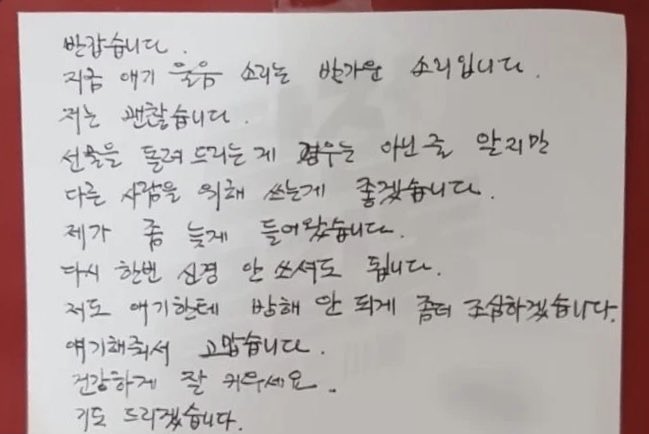 반갑습니다.
지금 애기 울음 소리는 반가운 소리입니다.
저는 괜찮습니다.
선물을 돌려 드리는 게 경우는 아닌 줄 알지만
다른 사람을 위해 쓰는게 좋겠습니다.
제가 좀 늦게 들어왔습니다.
다시 한번 신경 안 쓰셔도 됩니다.
저도 애기한테 방해 안 되게 좀더 조심하겠습니다.
얘기해줘서 고맙습니다.
건강하게 잘 키우세요.
기도 드리겠습니다.